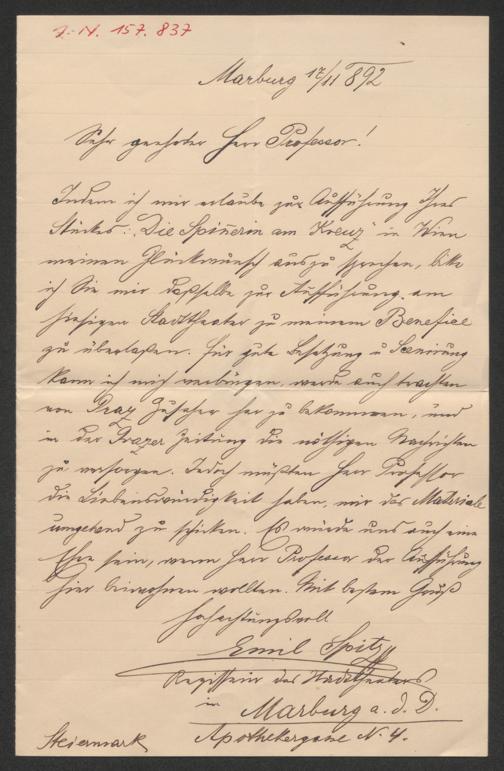 J.-N. 157.837
Marburg 17/11 892
Sehr geehrter Herr Professor!
Indem ich mir erlaube zur Aufführung Ihres
Stückes: „Die Spin̄erin am Kreuz" in Wien
meinen Glückwunsch auszusprechen, bitte
ich Sie mir dasselbe zur Aufführung am
hiesigen Stadttheater zu meinem Benefice
zu überlaßen. Für gute Besetzung u Scenirung
kann ich mich verbürgen, werde auch trachten
von Graz Zuseher her zu bekommen, und
in der Grazer Zeitung die nöthigen Nachrichten
zu versorgen. Jedoch müßten Herr Professor
die Liebenswürdigkeit haben, mir das Materiale
umgehend zu schicken. Es würde uns auch eine
Ehre sein, wenn Herr Professor der Aufführung
hier beiwohnen wollten. Mit bestem Gruß
hochachtungsvoll
Emil Spitz
Regisseur des Stadttheaters
in
Marburg a. d. D.
Steiermark Apothekergasse N. 4.